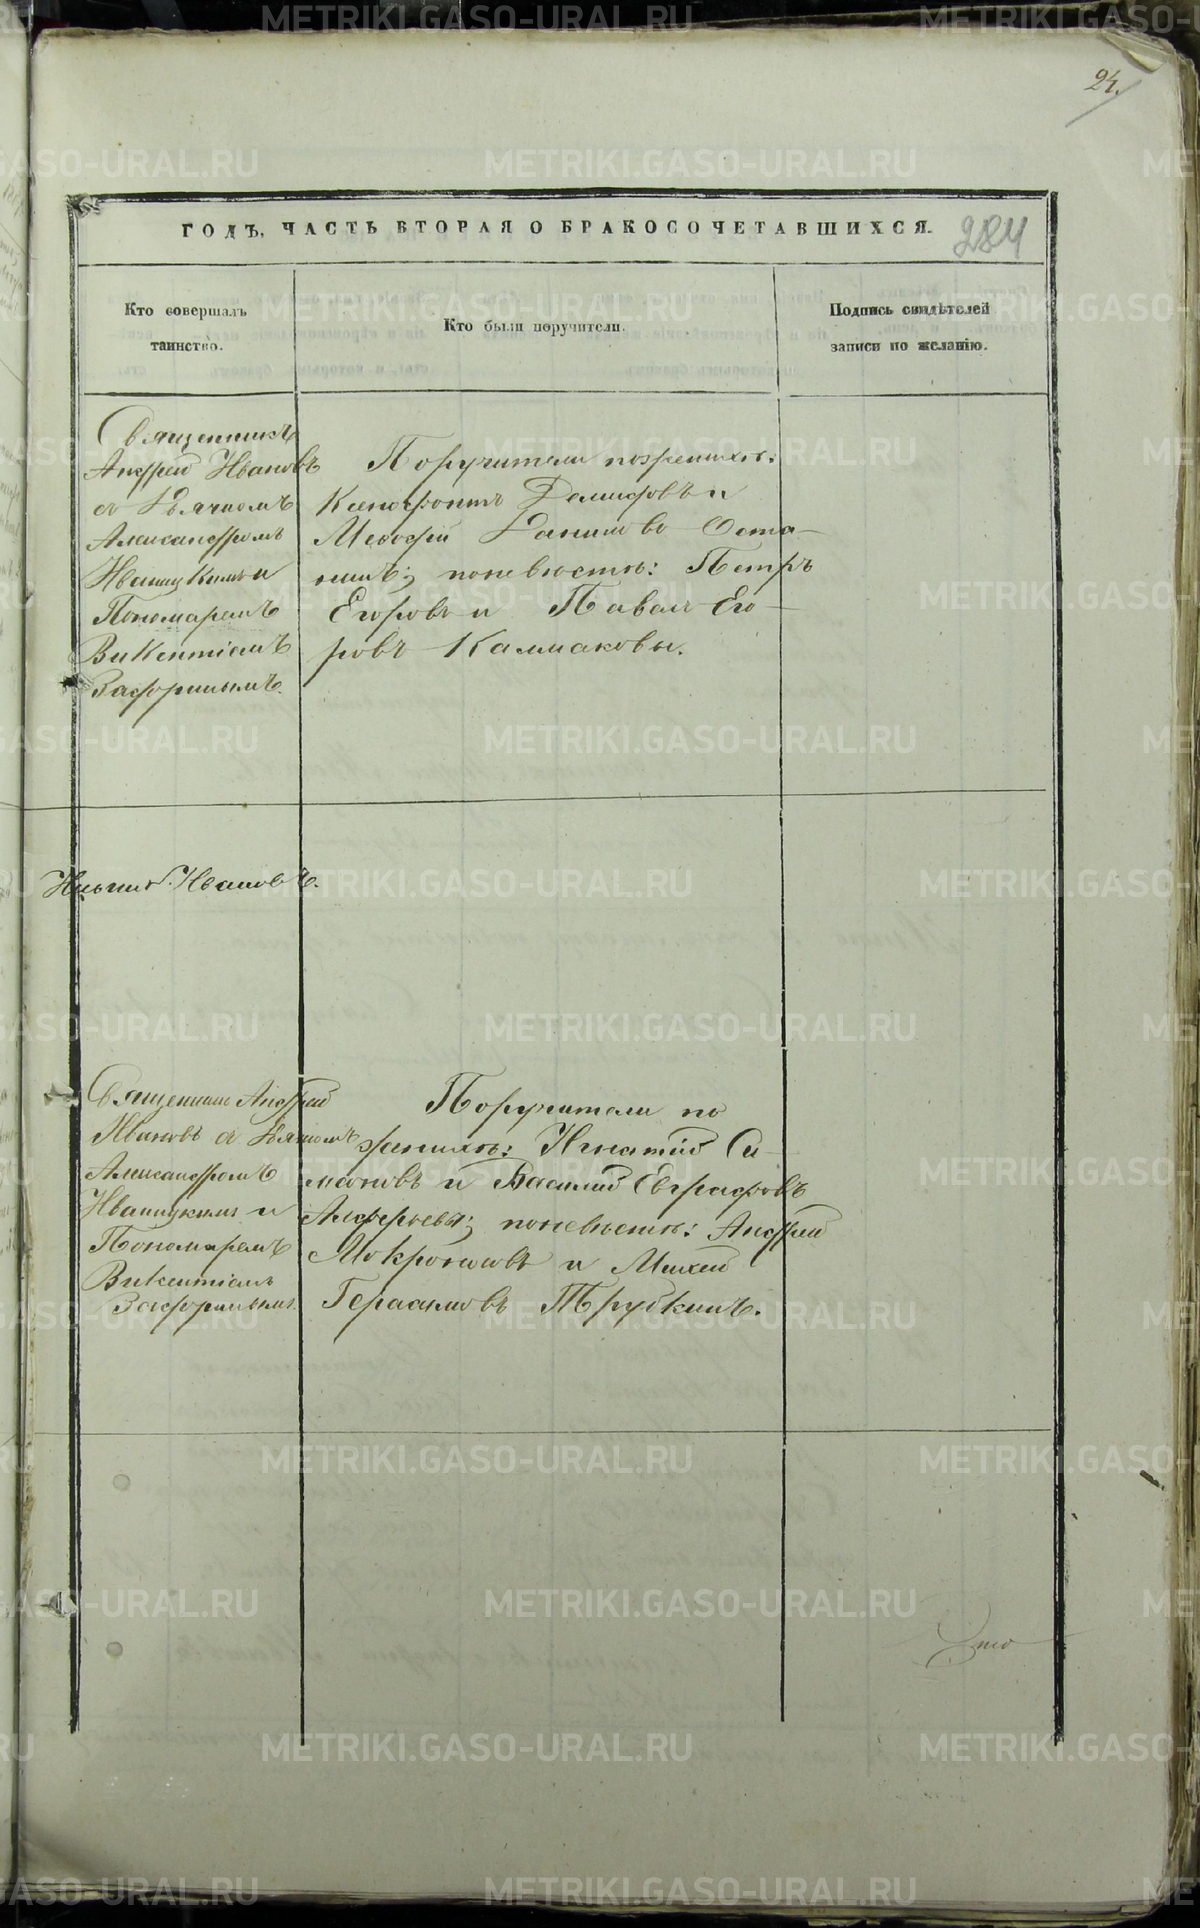 24.
ГОДЪ, ЧАСТЬ ВТОРАЯ О БРАКОСОЧЕТАВШИХСЯ.
284
Кто совершалъ
таинство.
Кто были поручители.
Подпись свидѣтелей
записи по желанію.
Священникъ
Андрей Ивановъ
съ Дьячкомъ
Александромъ
Иваницкимъ и
Пономаремъ
Викентіемъ
Задоринымъ.
Поручители по женихѣ:
Ксенофонтъ Демидовъ и
Меѳодій Даниловъ Оста-
нинъ; по невѣстѣ: Петръ
Егоровъ и Павелъ Его-
ровъ Калмаковы.
Ивановъ.
Священникъ Андрей
Ивановъ съ Дьячкомъ
Александромъ
Иваницкимъ и
Пономаремъ
Викентіемъ
Задоринымъ.
Поручители по
женихѣ: Игнатій Си-
мановъ и Василій Евграфовъ
Алферьевы; по невѣстѣ: Андрей
и Михей
Герасимовъ Трубкинъ.
METRIKI.GASO-URAL.RU